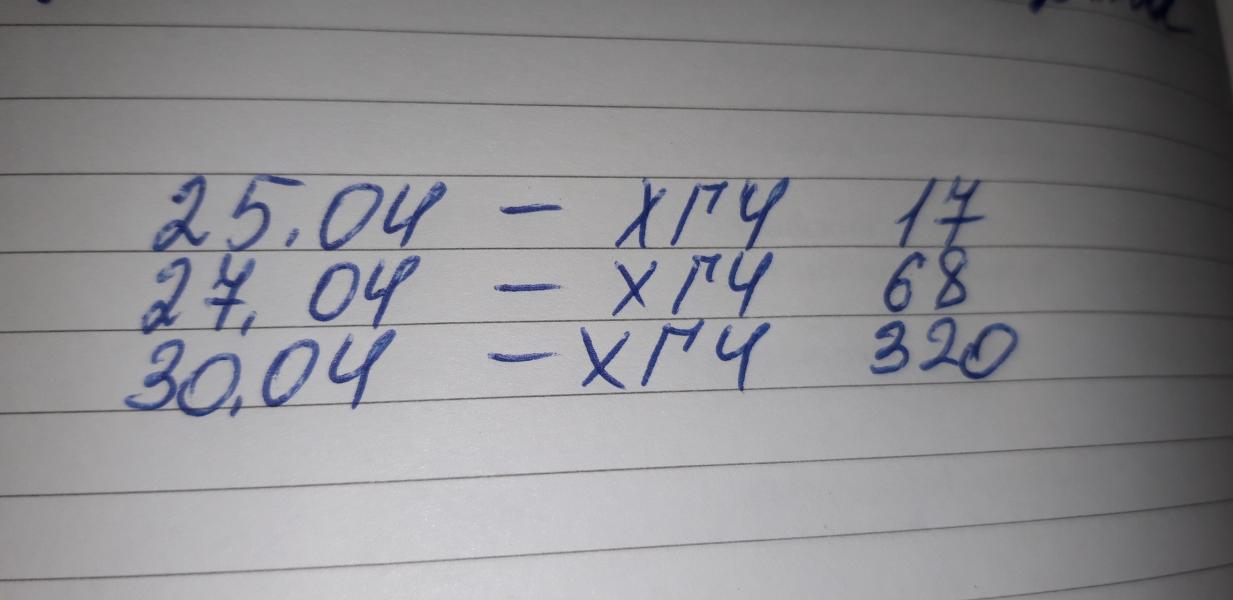 25.04 - ХГЧ 17
27.04 - ХГЧ 68
30.04 - ХГЧ 320